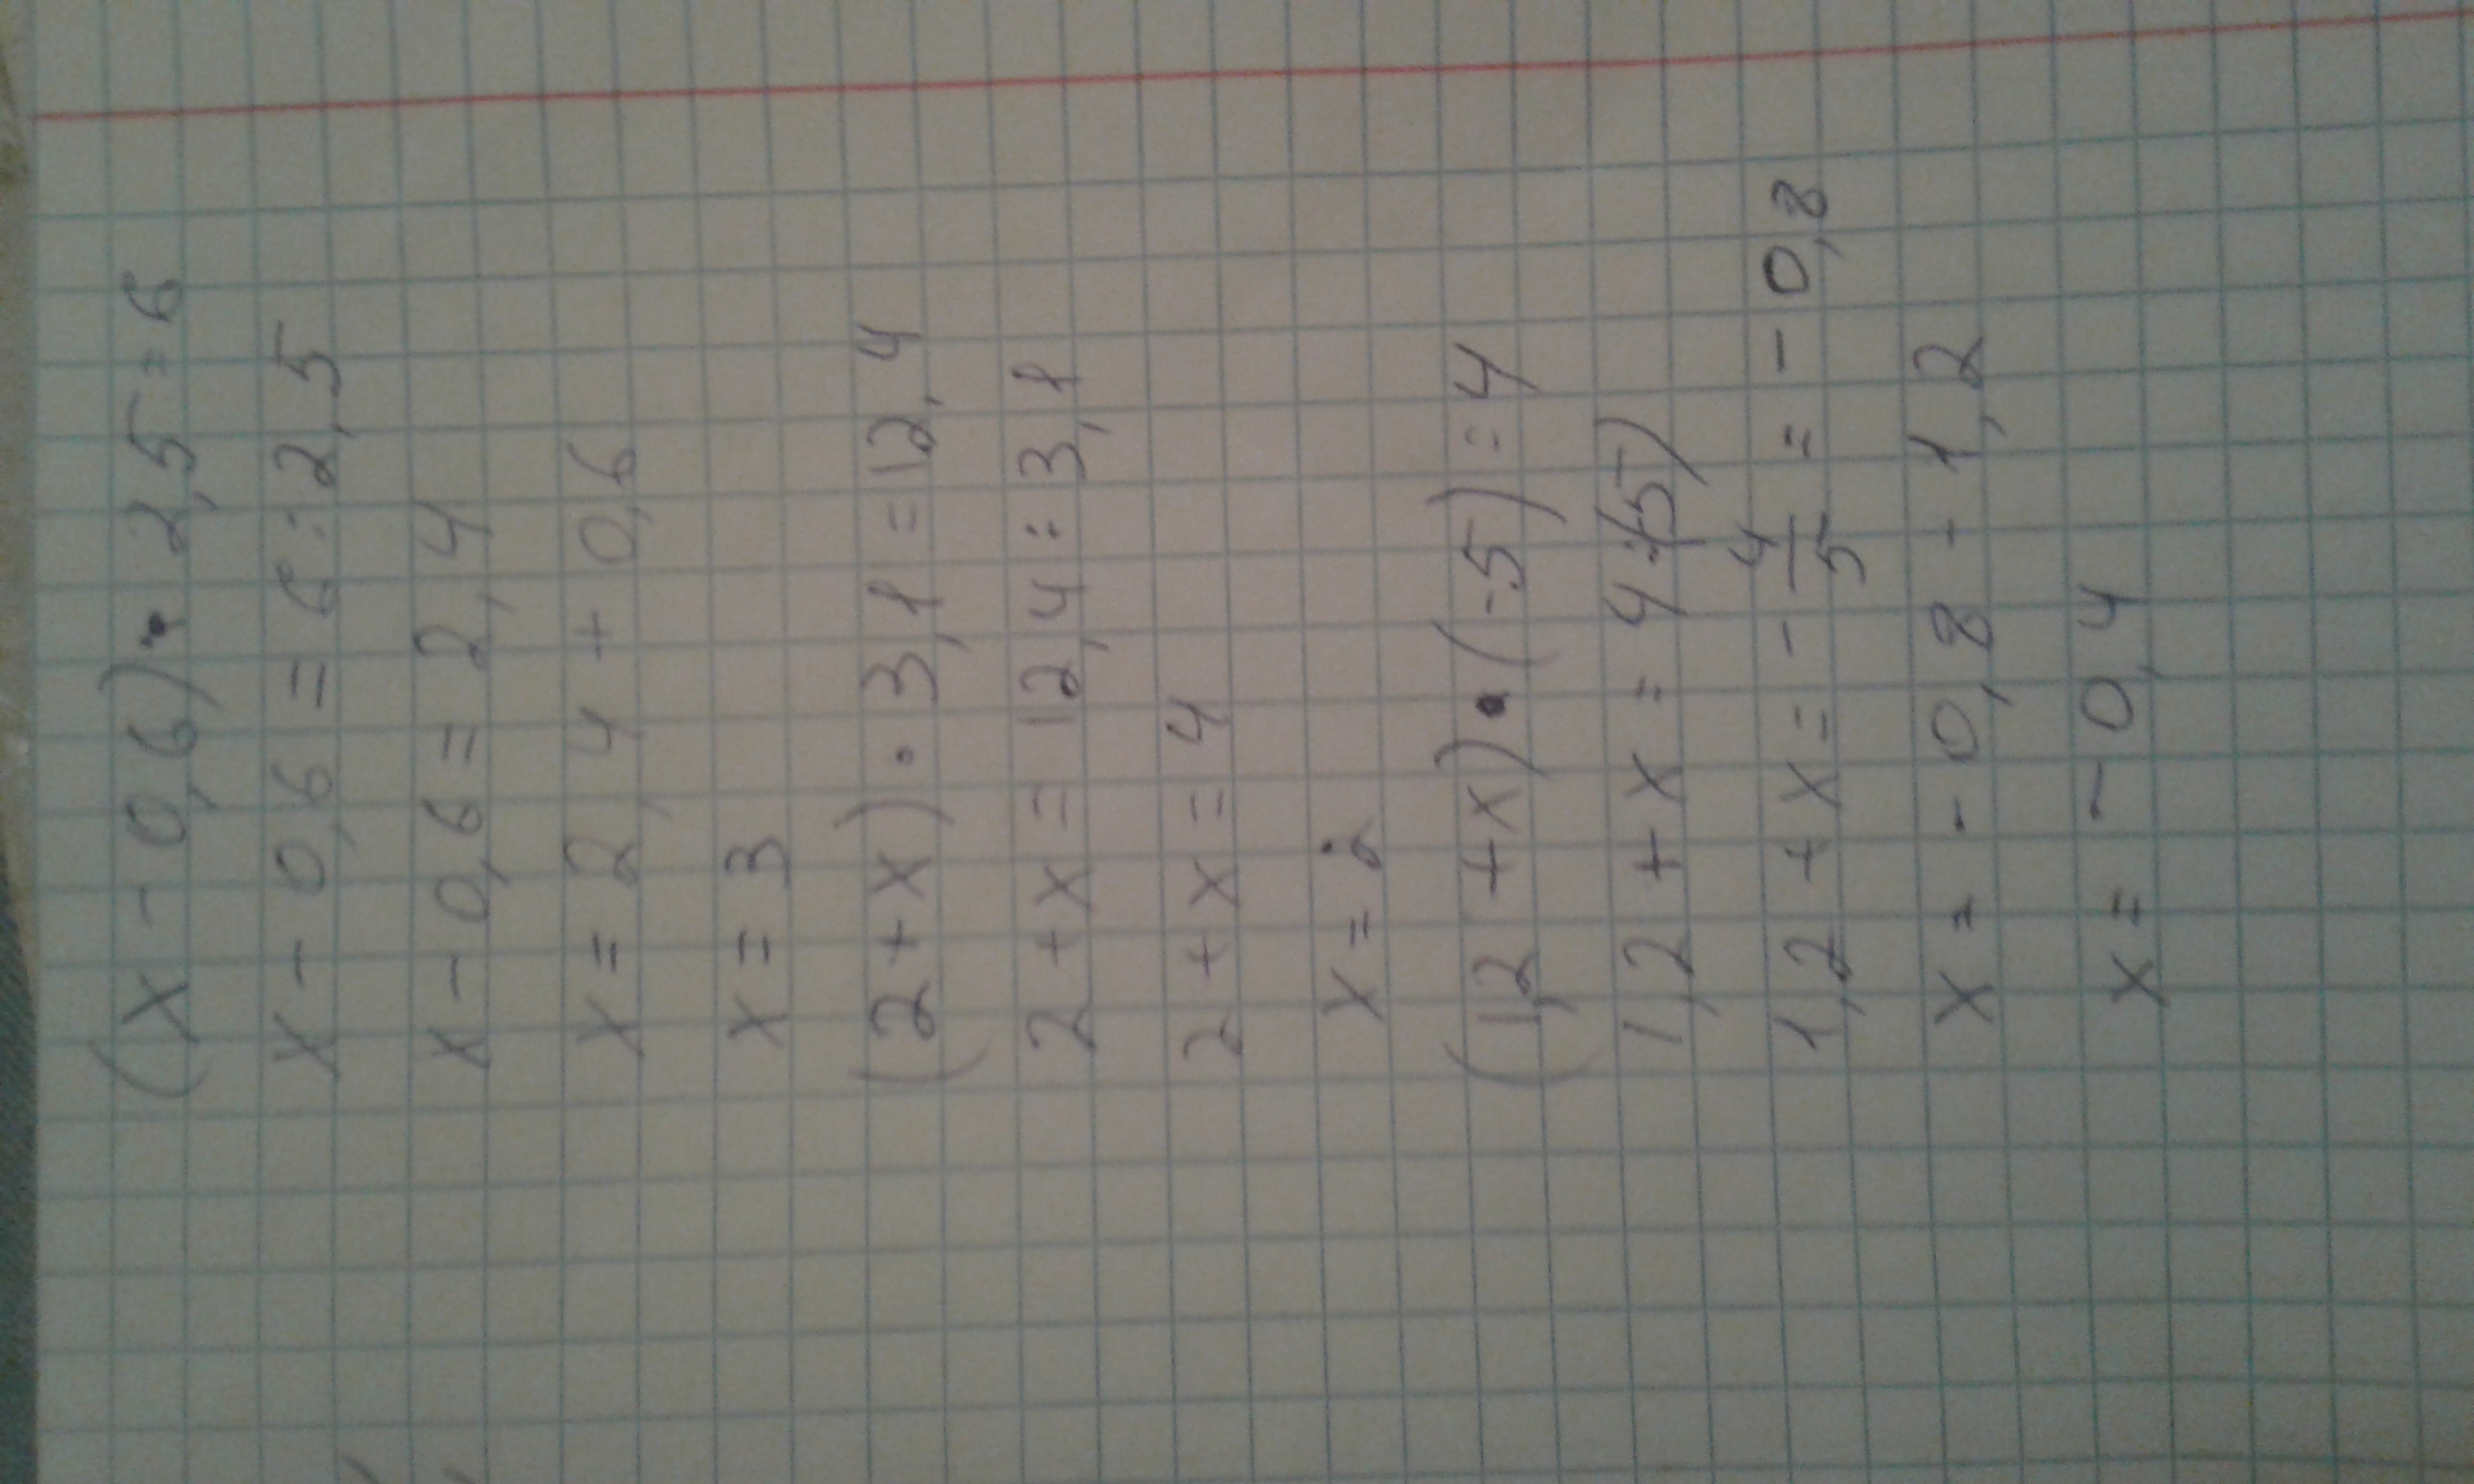 (x - 0,6) • 2,5 = 6
x - 0,6 = 6 : 2,5
x - 0,6 = 2,4
x = 2,4 + 0,6
x = 3
(2 + x) • 3,1 = 12,4
2 + x = 12,4 : 3,1
2 + x = 4
x = 2
(1,2 + x) • (-5) = 4
1,2 + x = 4 : (-5)
1,2 + x = - 4/5 = - 0,8
x = - 0,8 - 1,2
x = - 0,4